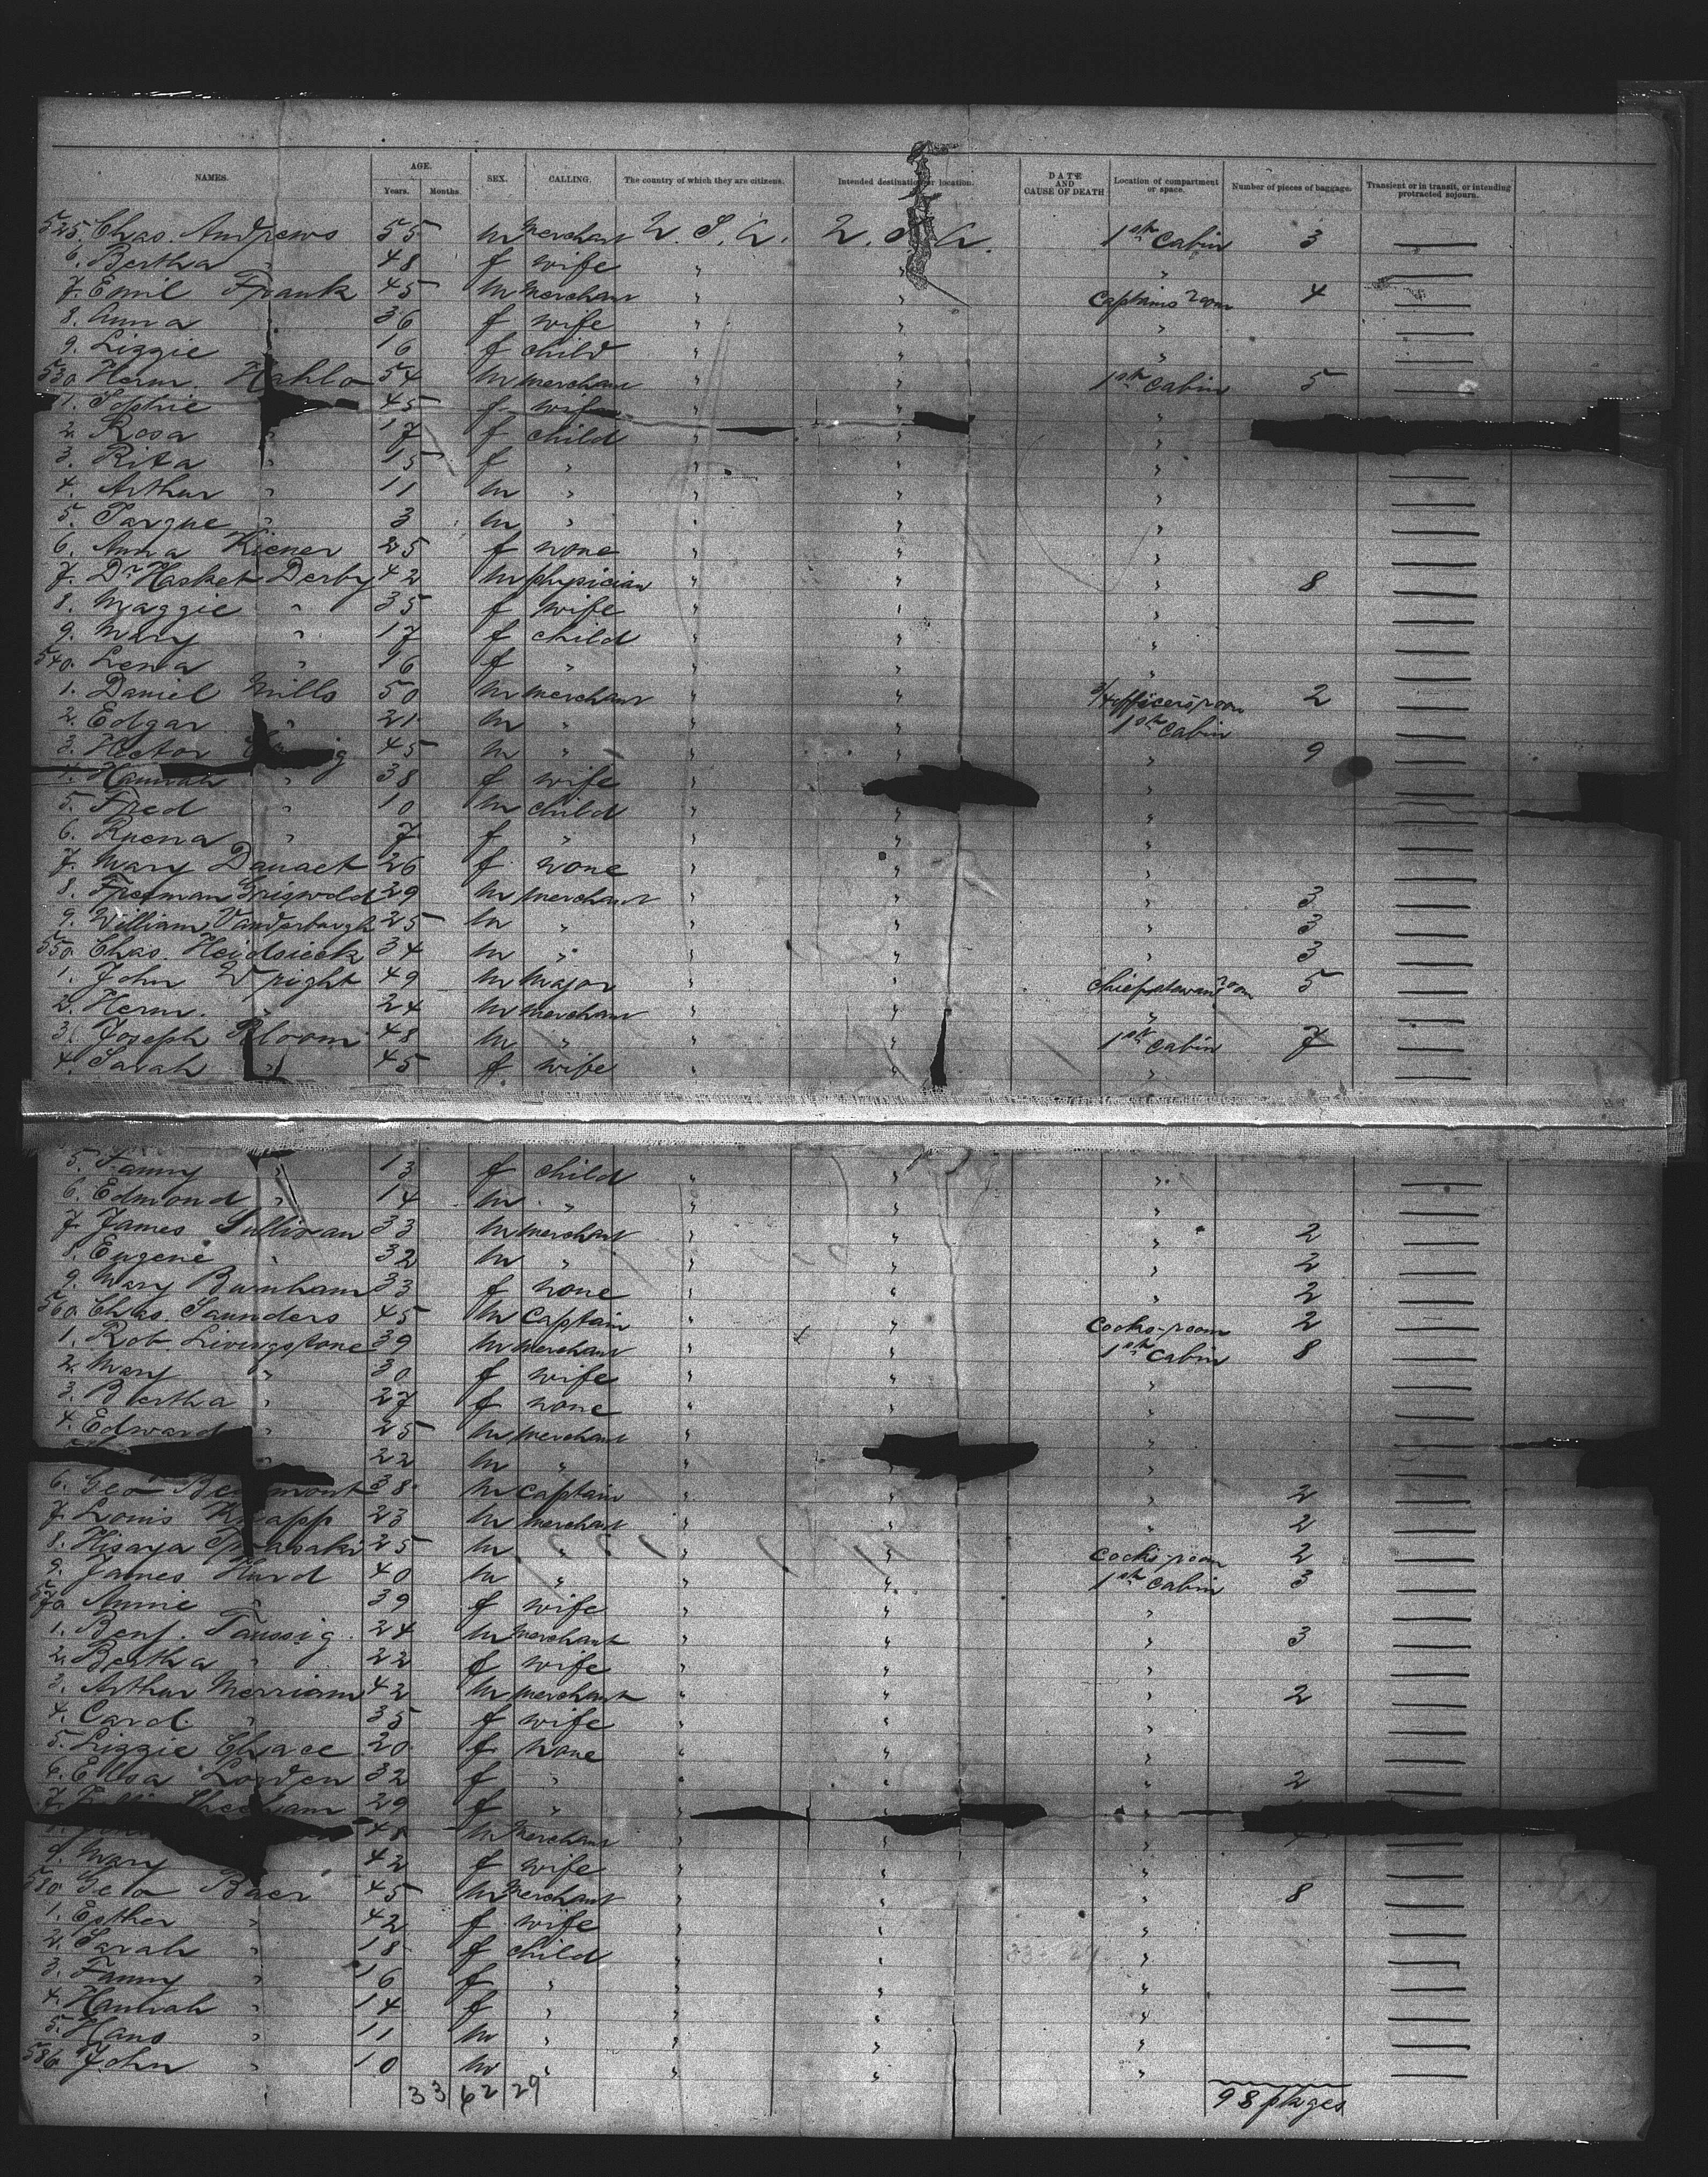 NAMES. AGE. Years. Months. SEX. CALLING. The country of which they are citizens. Intended destination or location. DATE AND CAUSE OF DEATH Location of compartment or space. Number of pieces of baggage. Transient or in transit, or intending protracted sojourn.
525. Chas. Andrews 55 m merchant U. S. A. U. S. A. 1st Cabin 3 —
6. Bertha " 48 f wife " " " —
7. Emil Frank 45 m merchant " " Captains room 4 —
8. Anna " 36 f wife " " " —
9. Lizzie " 16 f child " " " —
530. Herm. Hahlo 54 m merchant " " 1st Cabin 5 —
1. Sophie " 45 f wife " " "
2. Rosa " 17 f child " " "
3. Rita " 15 f " " " " —
4. Arthur " 11 m " " " " —
5. " 3 m " " " " —
6. Anna Kiener 25 f none " " " —
7. Dr Hasket Derby 42 m physician " " " 8 —
8. Maggie " 35 f wife " " " —
9. Mary " 17 f child " " " —
540. Lena " 16 f " " " " —
1. Daniel Mills 50 m merchant " " 3/4 officers room 2 —
2. Edgar " 21 m " " " 1st Cabin —
3. Hector 45 m " " " " 9 —
4. Hannah " 38 f wife " " —
5. Fred " 10 m child " " " —
6. " 7 f " " " " —
7. Mary 26 f none " " " —
8. Freeman Grigwold 29 m merchant " " " 3 —
9. William Vanderburgh 25 m " " " " 3 —
550. Chas. Heidsieck 34 m " " " " 3 —
1. John Wright 49 m Major " " Chief stewards room 5 —
2. Herm. " 24 m merchant " " " —
3. Joseph Bloom 48 m " " " 1st Cabin 7 —
4. Sarah " 45 f wife " " " —
5. Fanny " 13 f child " " " —
6. Edmond " 14 m " " " " —
7. James Sullivan 33 m merchant " " " 2 —
8. Eugene " 32 m " " " " 2 —
9. Mary Burnham 33 f none " " " 2 —
560. Chas. Saunders 45 m Captain " " Cooks-room 2 —
1. Rob Livingstone 39 m merchant " " 1st Cabin 8 —
2. Mary " 30 f wife " " " —
3. Bertha " 27 f none " " " —
4. Edward " 25 m merchant " " —
" 22 m " " " —
6. Geo 38 m Captain " " " 2 —
7. Louis Knapp 23 m merchant " " " 2 —
8. Hisaya 25 m " " " Cooks room 2 —
9. James Hurd 40 m " " " 1st Cabin 3 —
570. Annie " 39 f wife " " " —
1. Benj. Taussig 24 m merchant " " " 3 —
2. Bertha " 22 f wife " " " —
3. Arthur Merriam 42 m merchant " " " 2 —
4. Carol. " 35 f wife " " " —
5. Lizzie Chace 20 f none " " " —
6. Elsa 32 f " " " " 2 —
7. 29 f " " "
8. 48 m merchant " " " —
9. Mary " 42 f wife " " " —
580. Geo Baer 45 m merchant " " " 8 —
1. Esther " 42 f wife " " " —
2. Sarah " 18 f child " " " —
3. Fanny " 16 f " " " " —
4. Hannah " 14 f " " " " —
5. Hans " 11 m " " " " —
586. John " 10 m " " " " —
33 62 29 98 pkges